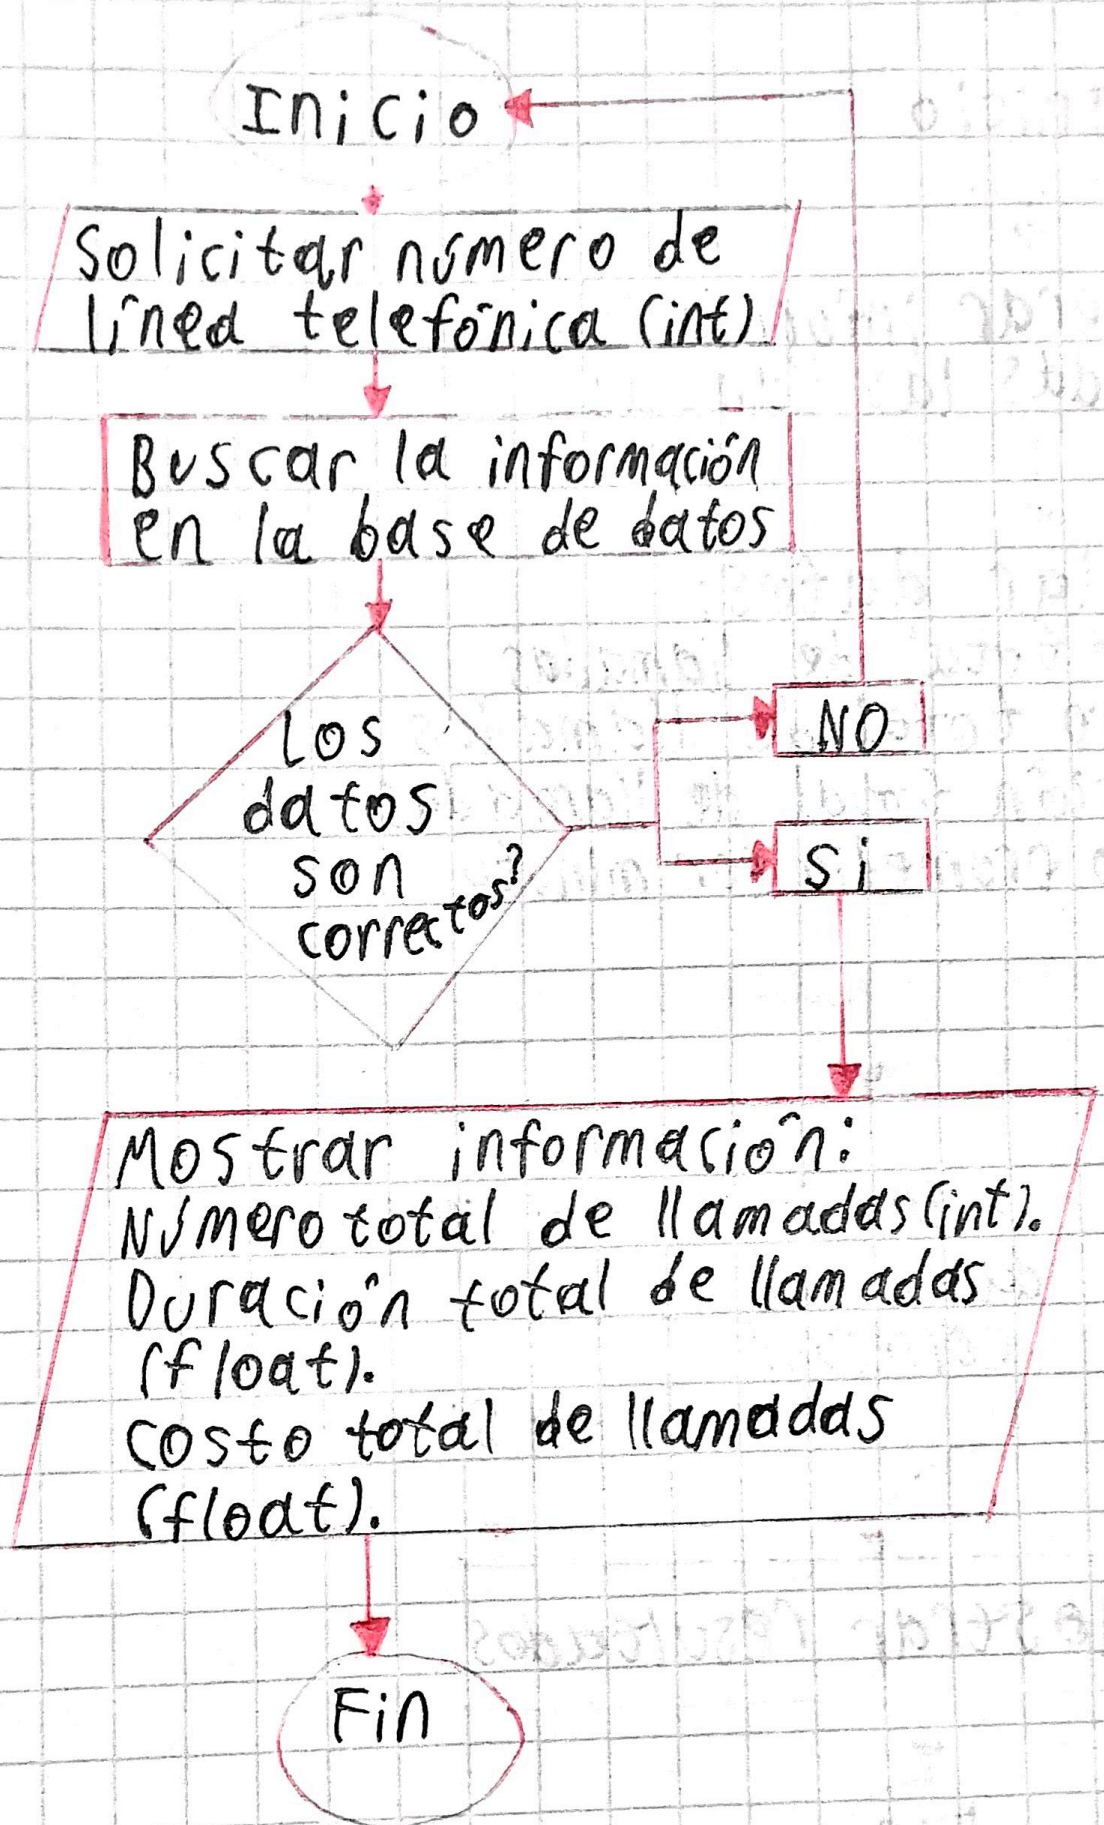 Inicio
Solicitar número de
línea telefónica (int)
Buscar la información
en la base de datos
Los
datos
son
correctos?
NO
Si
Mostrar información:
Número total de llamadas (int).
Duración total de llamadas
(float).
Costo total de llamadas
(float).
Fin